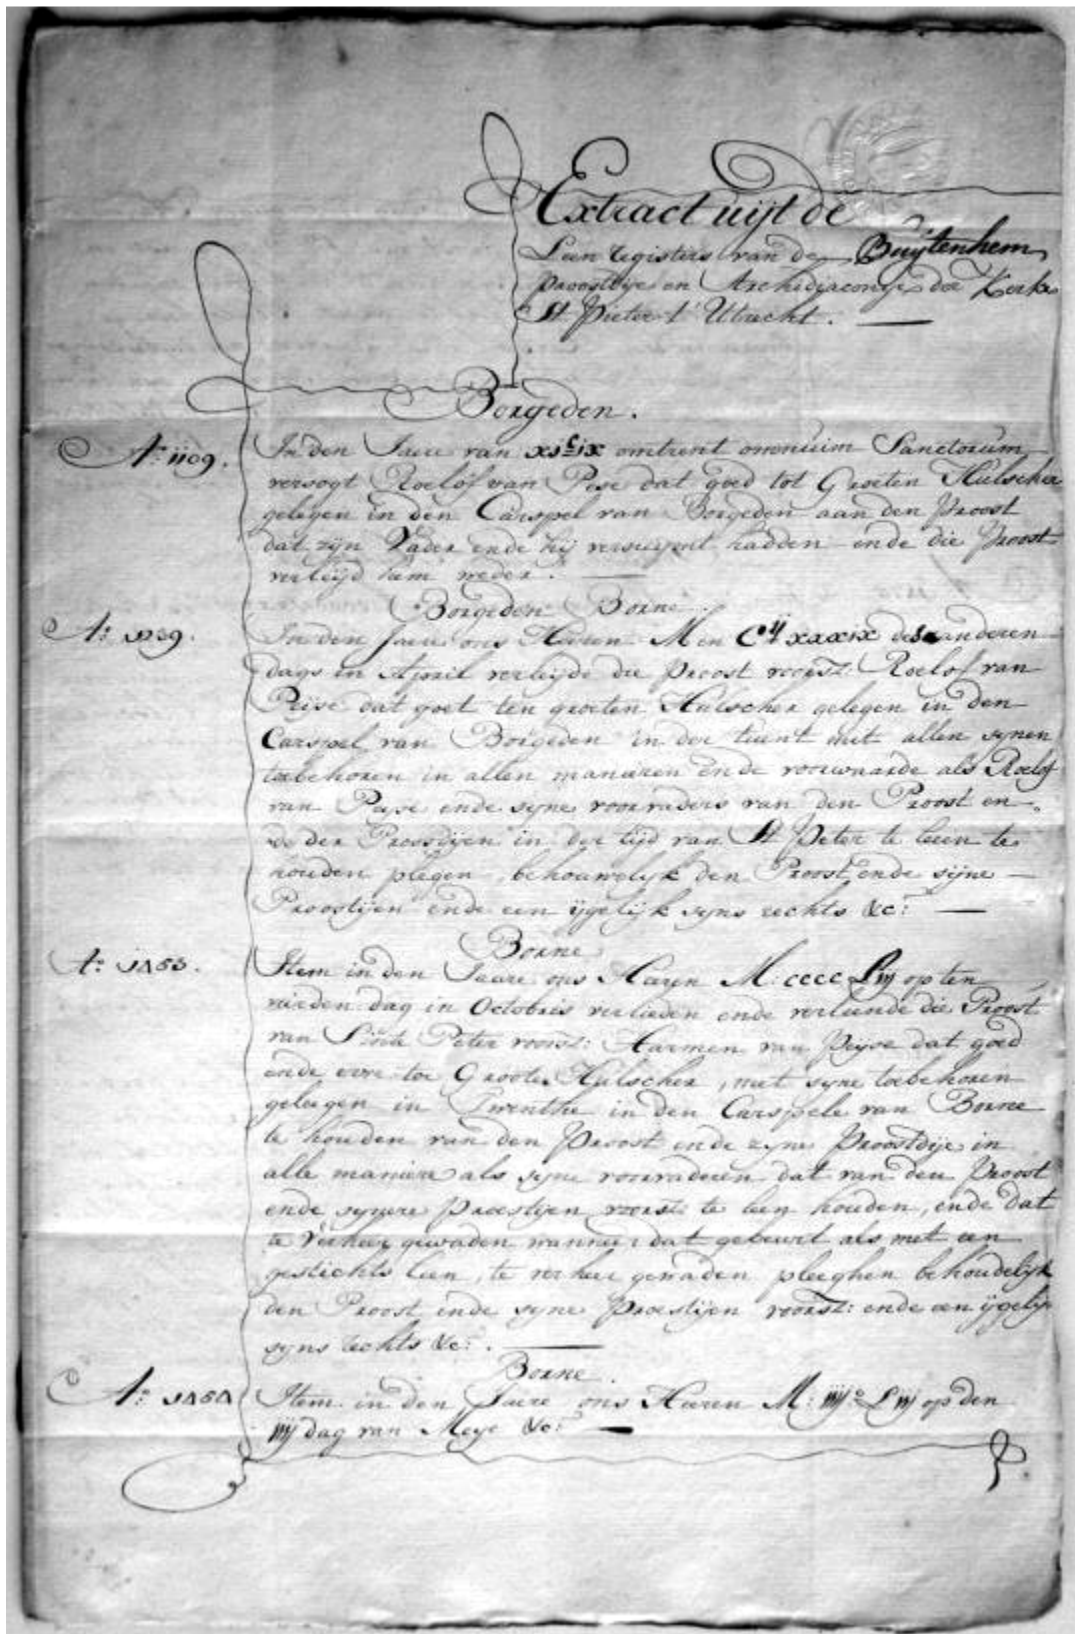 Extract uijt de
Leen registers van de Buijtenhem
proostdije en Archidiaconije der Kerke
St Pieter t' Utrecht.
Borgeden.
Ao: 1109.
In den Jaere van xjc ix omtrent omnuim Sanctorum
versogt Roelof van Pese dat goed tot Groeten Hulscher
gelegen in den Carspel van Borgeden aan den Proost
dat zijn Vader ende hij versuijmt hadden ende die Proost
verleijd hem weder.
Borgeden Borne.
Ao: 1239.
In den Jaere ons Heeren M en Cij xxxix des anderen
dags in April verleijde die Proost voorsz: Roelof van
Peijse dat goet ten groeten Hulscher gelegen in den
Carspel van Borgeden in der tuent met allen synen
toebehoren in allen manieren ende voorwaarde als Roelof
van Peijse ende syne voorvaders van den Proost en
de der Proosdijen in der tijd van St Peter te leen te
houden plegen, behouwelijk den Proost ende sijne
Proostijen ende een ijgelijk syns rechts &c:
Borne
Ao: 1453.
Item in den Jaare ons Heren M: cccc Liij op ten
vierden dag in Octobris verlieden ende verleende die Proost
van Peter voorsz: Harmen van Peijse dat goed
ende erve toe Groote Hulscher, met syne toebehoren
gelegen in Twenthe in den Carspele van Borne
te houden van den Proost ende zyne Proostdije in
alle maniere als syne voorvaderen dat van den Proost
ende synere Proestijen voorsz: te leen houden, ende dat
te verheer gewaden wanneer dat gebeurt als met een
gestichts leen, te verheer gewaden pleeghen behoudelijk
den Proost ende syne Proestijen voorsz: ende een ijgelijk
syns rechts &c:
Borne.
Ao: 1454
Item in den Jaere ons Heeren M: iiijc Liij op den
iiij dag van Meye &c: